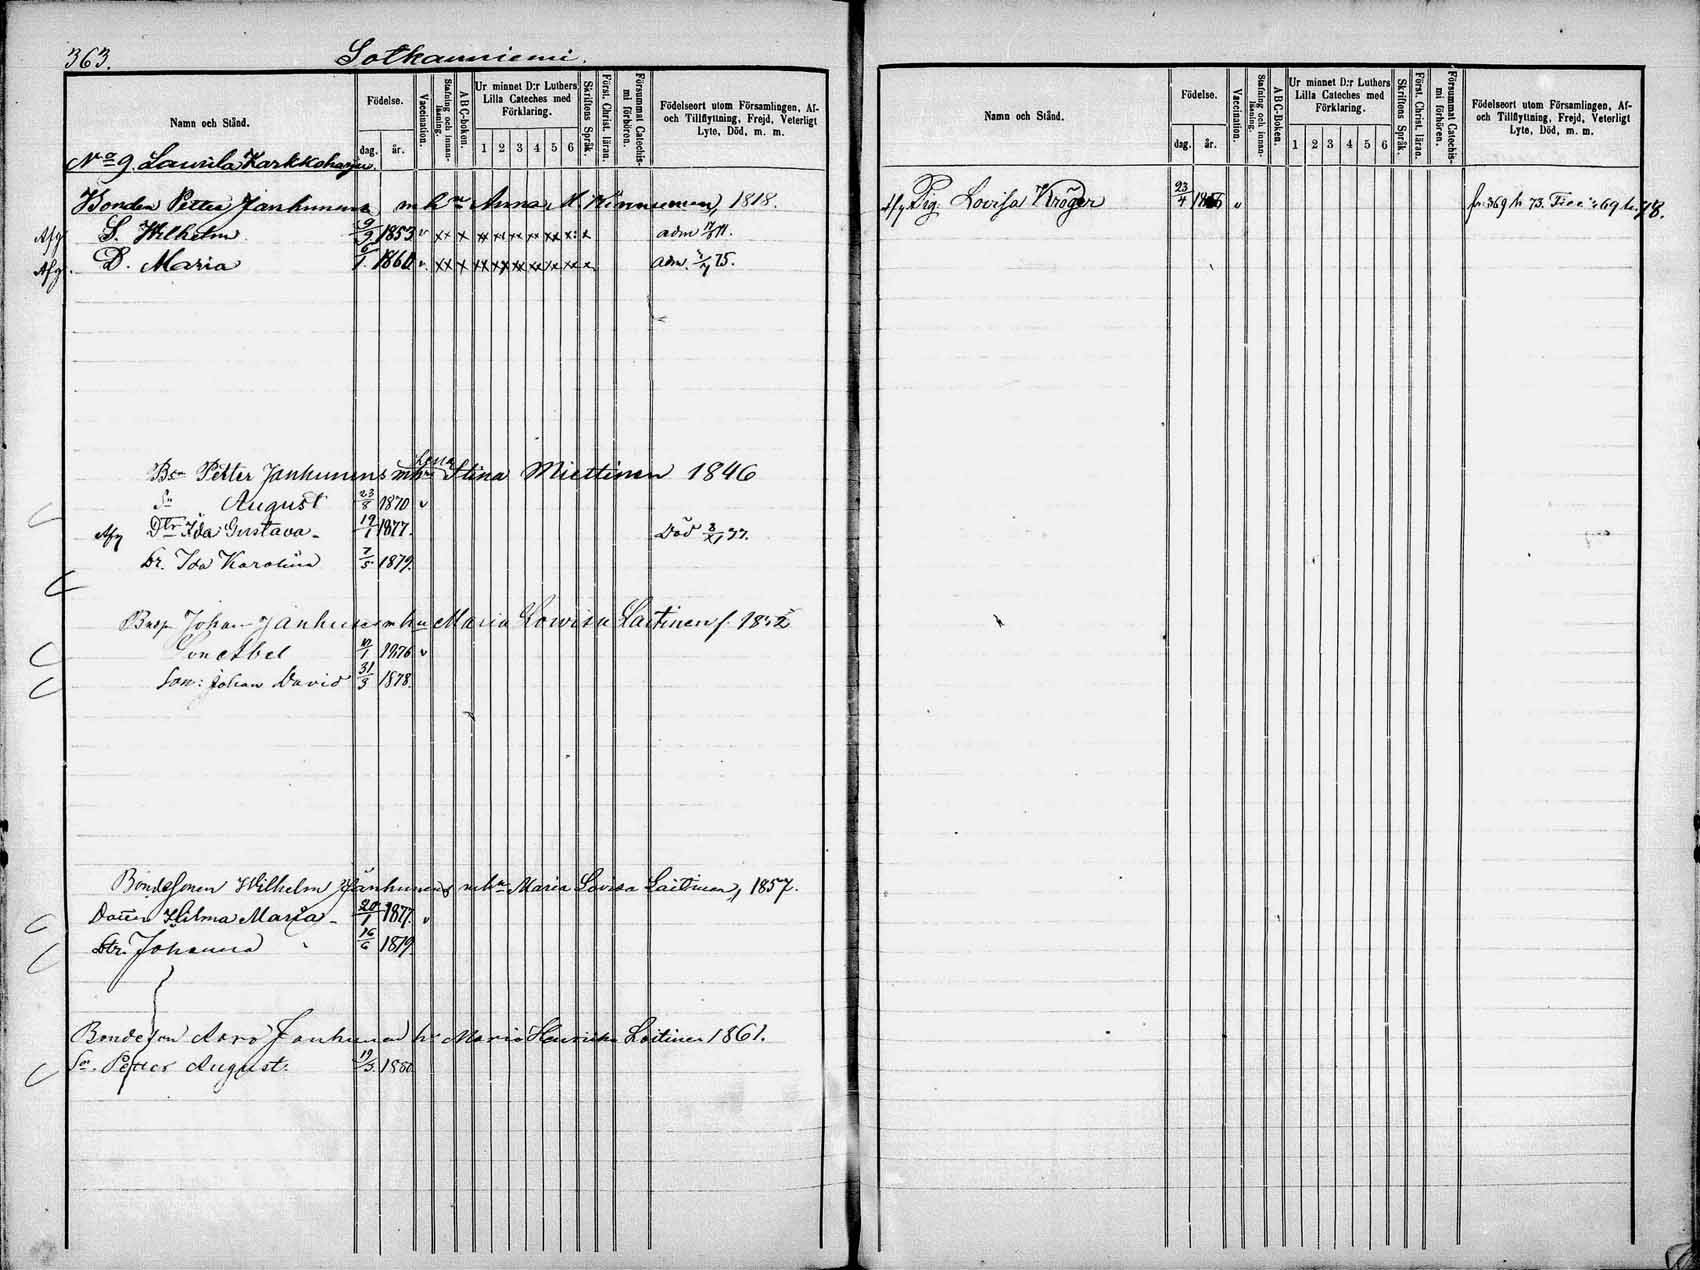 363. Sotkanniemi.
Namn och Stånd.
Födelse.
dag. år.
Vaccination.
Stafning och innan-läsning.
ABC-boken.
Ur minnet D:r Luthers Lilla Cateches med Förklaring.
1 2 3 4 5 6
Skriftens Språk.
Först. Christ. läran.
Försummat Catechis-mi förhören.
Födelseort utom Församlingen, Af-och Tillflyttning, Frejd, Veterligt Lyte, Död, m. m.
No 9. Laurila Karkkoharju.
Bonden Petter Janhunens m hu Anna M. Kinnunen, 1818.
Afg S. Wilhelm 9/9 1853 v xx x xx xx xx xx xx x x adm 71.
Afg. D. Maria 6/1 1860 v xx x xx xx xx xx xx x x adm. 75.
Bn Petter Janhunens m hu Lena Stina Miettinen 1846
Sn August 23/8 1870 v
Afg Dtr Ida Gustava 19/1 1877. Död 3/XI 77.
Dr. Ida Karolina 7/5 1879.
Johan Janhunens m hu Maria Lowisa Laitinen f. 1852
Son Abel 1876 v
Son: Johan David 31/3 1878.
Bondesonen Wilhelm Janhunens m hu Maria Lovisa Laitinen, 1857.
Dottern Hilma Maria 20/1 1877. v
Dtr. Johanna 16/6 1879.
Bondeson Aaro Janhunen h Maria Henrika Laitinen 1861.
Sn. Petter August. 19/3 1880
Namn och Stånd.
Födelse.
dag. år.
Vaccination.
Stafning och innan-läsning.
ABC-Boken.
Ur minnet D:r Luthers Lilla Cateches med Förklaring.
1 2 3 4 5 6
Skriftens Språk.
Först. Christ. läran.
Försummat Catechis-mi förhören.
Födelseort utom Församlingen, Af-och Tillflyttning, Frejd, Veterligt Lyte, Död, m. m.
Afg Pig. Lovisa Kröger 23/4 v fr. 369 h 73. 69 h. 78.